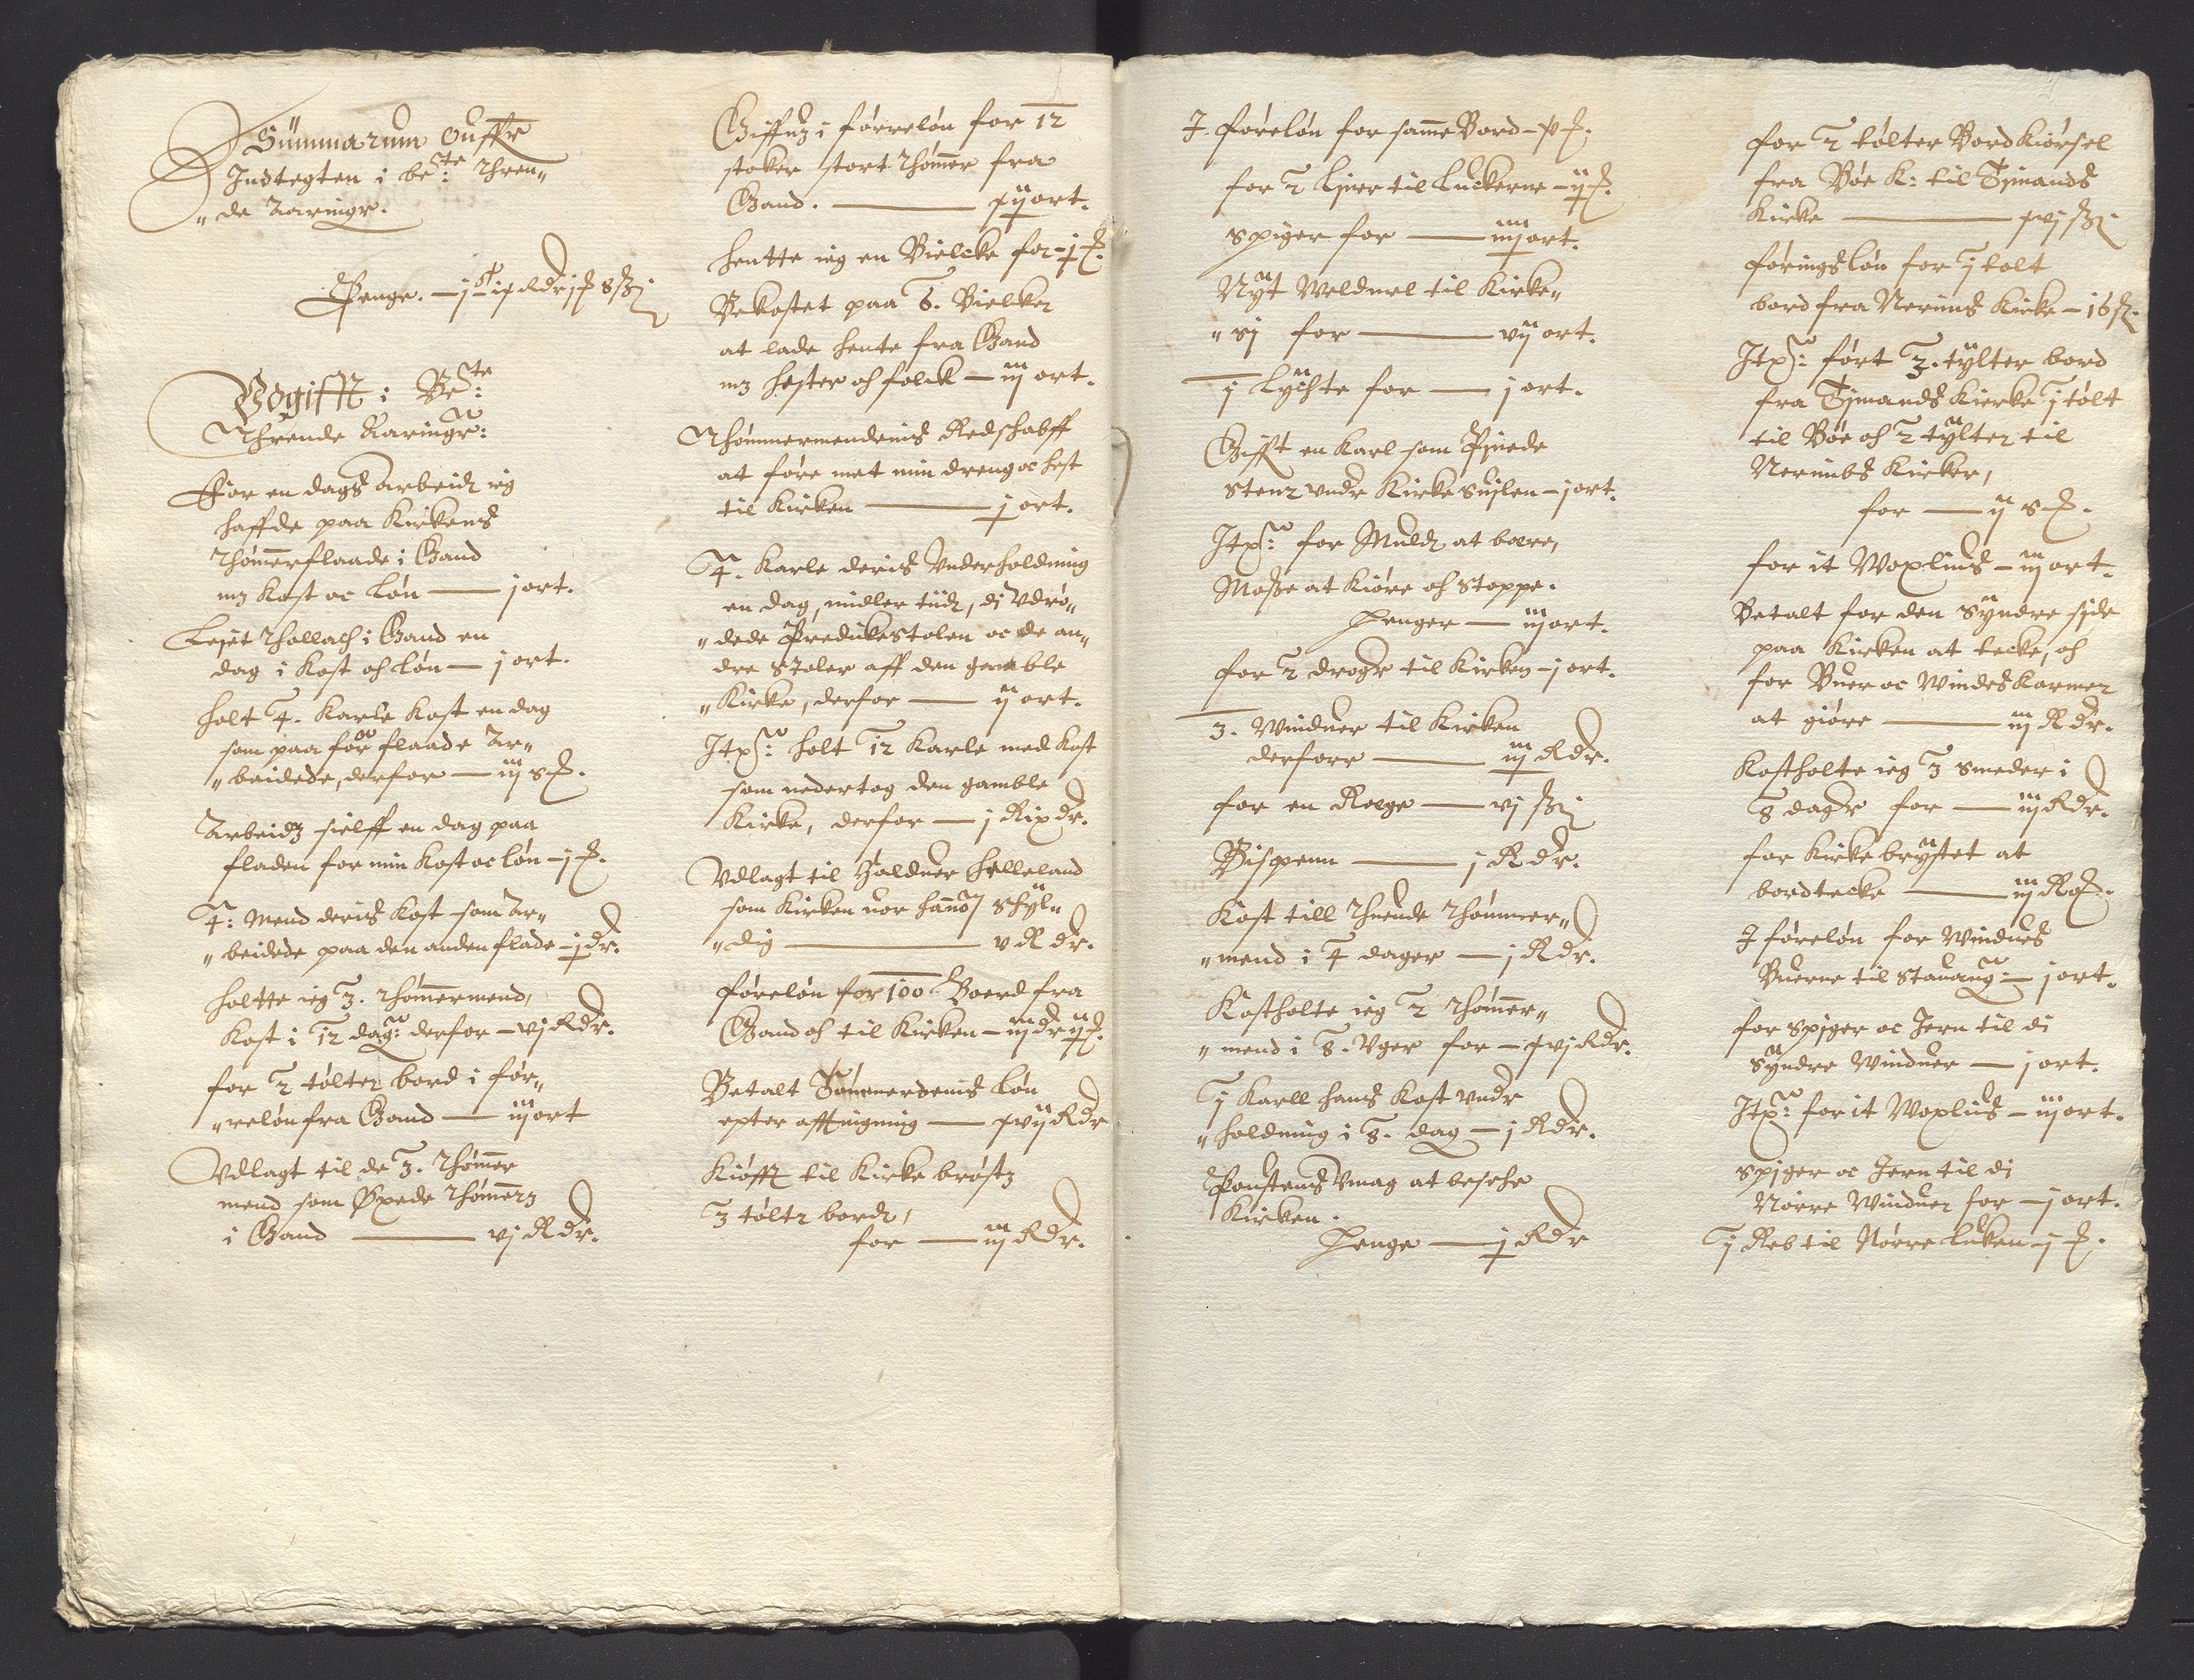 Summarum Ouffr
Indtegten i be:te Thren„
„de Aaringr.
Penge. —
Vdgifft i Be:te
Thrende Aaringr:
For en dags Arbeid ieg
haffde paa Kirkens
Thømerflaade i Gand
mz Kost oc Løn — j ort.
Lejet Thollach i Gand en
dag i Kost oc Løn — j ort.
holt 4. Karle Kost en dag
som paa før flaade Ar„
„beidede, derfor — iij
Arbeidz sielff en dag paa
fladen for min Kost oc løn — j
4: Mend deris Kost som Ar„
„beidede paa den anden flade — j dr.
holtte ieg 3. Thømermend,
Kost i 12 dag: derfor — vj Rdr.
for 2 tølter bord i før„
„reløn fra Gand — iij ort
Vdlagt til de 3. Thømer
mend som Øxede Thømerz
i Gand — vj Rdr.
Giffuz i førreløn for 12
stoker stort Thømer fra
Gand. — ort.
hentte ieg en Bielcke for — j
Bekostet paa 6. Bielker
at lade hente fra Gand
mz hester och folck — iij ort.
Thømmermendenis Redschabff
at føre met min dreng oc hest
til Kirken — j ort.
4. Karle deris Vnderholdning
en dag, midler tiid, di Vdrø„
„dede Predikestolen oc de an„
dre Stoler aff den gamble
„Kirke, derfor — ij ort.
holt 12 Karle med Kost
som nedertog den gamble
Kirke, derfor — j Rixdr.
Vdlagt til Halduer Helleland
som Kirken uor hannd schyl„
„dig — v Rdr.
føreløn for 100 Boerd fra
Gand och til Kirken — iij dr ij
Betalt Tømmermenis Løn
epter affregning — xvij Rdr
Kiøfft til Kirke brøstz
3 tølt bord,
for — iij Rdr.
I føreløn for samme Bord —
for 2 Ljner til Luckerne — ij
Spiger for — iiij ort.
Nyt Weldmel til Kirke„
„sj for — vij ort.
j Lychte for — j ort.
Gifft en Karl som Pjnede
Stenz vndr Kirke Suylen — j ort.
for Muld at bære,
Mosse at Kiøre och stoppe.
Penger — iij ort.
for 2 drogr til Kirken — j ort.
3. Winduer til Kirken
derforr — iij Rdr.
for en Roege — vj ß
Bispenn — j Rdr.
Kost till Thuende Thømmer„
„mend i 4 dager — j Rdr.
Kostholte ieg 2 Thømer„
„mend i 8. Vger for — xvj Rdr.
j Karll hans Kost vndr
„holdning i 8. dag — j Rdr.
Prousten Vmag at besehe
Kirken.
Penge — j Rdr
for 2 tølter Bord Kiørsel
fra Bøe K: til Tjmands
Kirke — xvj ß
føringsløn for j tolt
bord fra Nerims Kirke — 16 ß
ført 3. tylter bord
fra Tjmands Kierke j tølt
til Bøe och 2 tylter til
Nerimbs Kirker,
for — ij
for it Woxlius — iij ort.
Betalt for den Syndre side
paa Kirken at tecke, och
for Buer oc Windes Karmer
at giøre — iij Rdr.
Kostholte ieg 3 Smeder i
8 dagr for — iij Rdr.
for Kirke brystet at
bordtecke — iij
I føreløn for Windues
Buerne til Stauang: — j ort.
for Spiger oc Jern til di
Syndre Winduer — j ort.
for it Woxlius — iij ort.
Spiger oc Jern til di
Nørre Winduer for — j ort.
j Reb til Nørre Luken — j